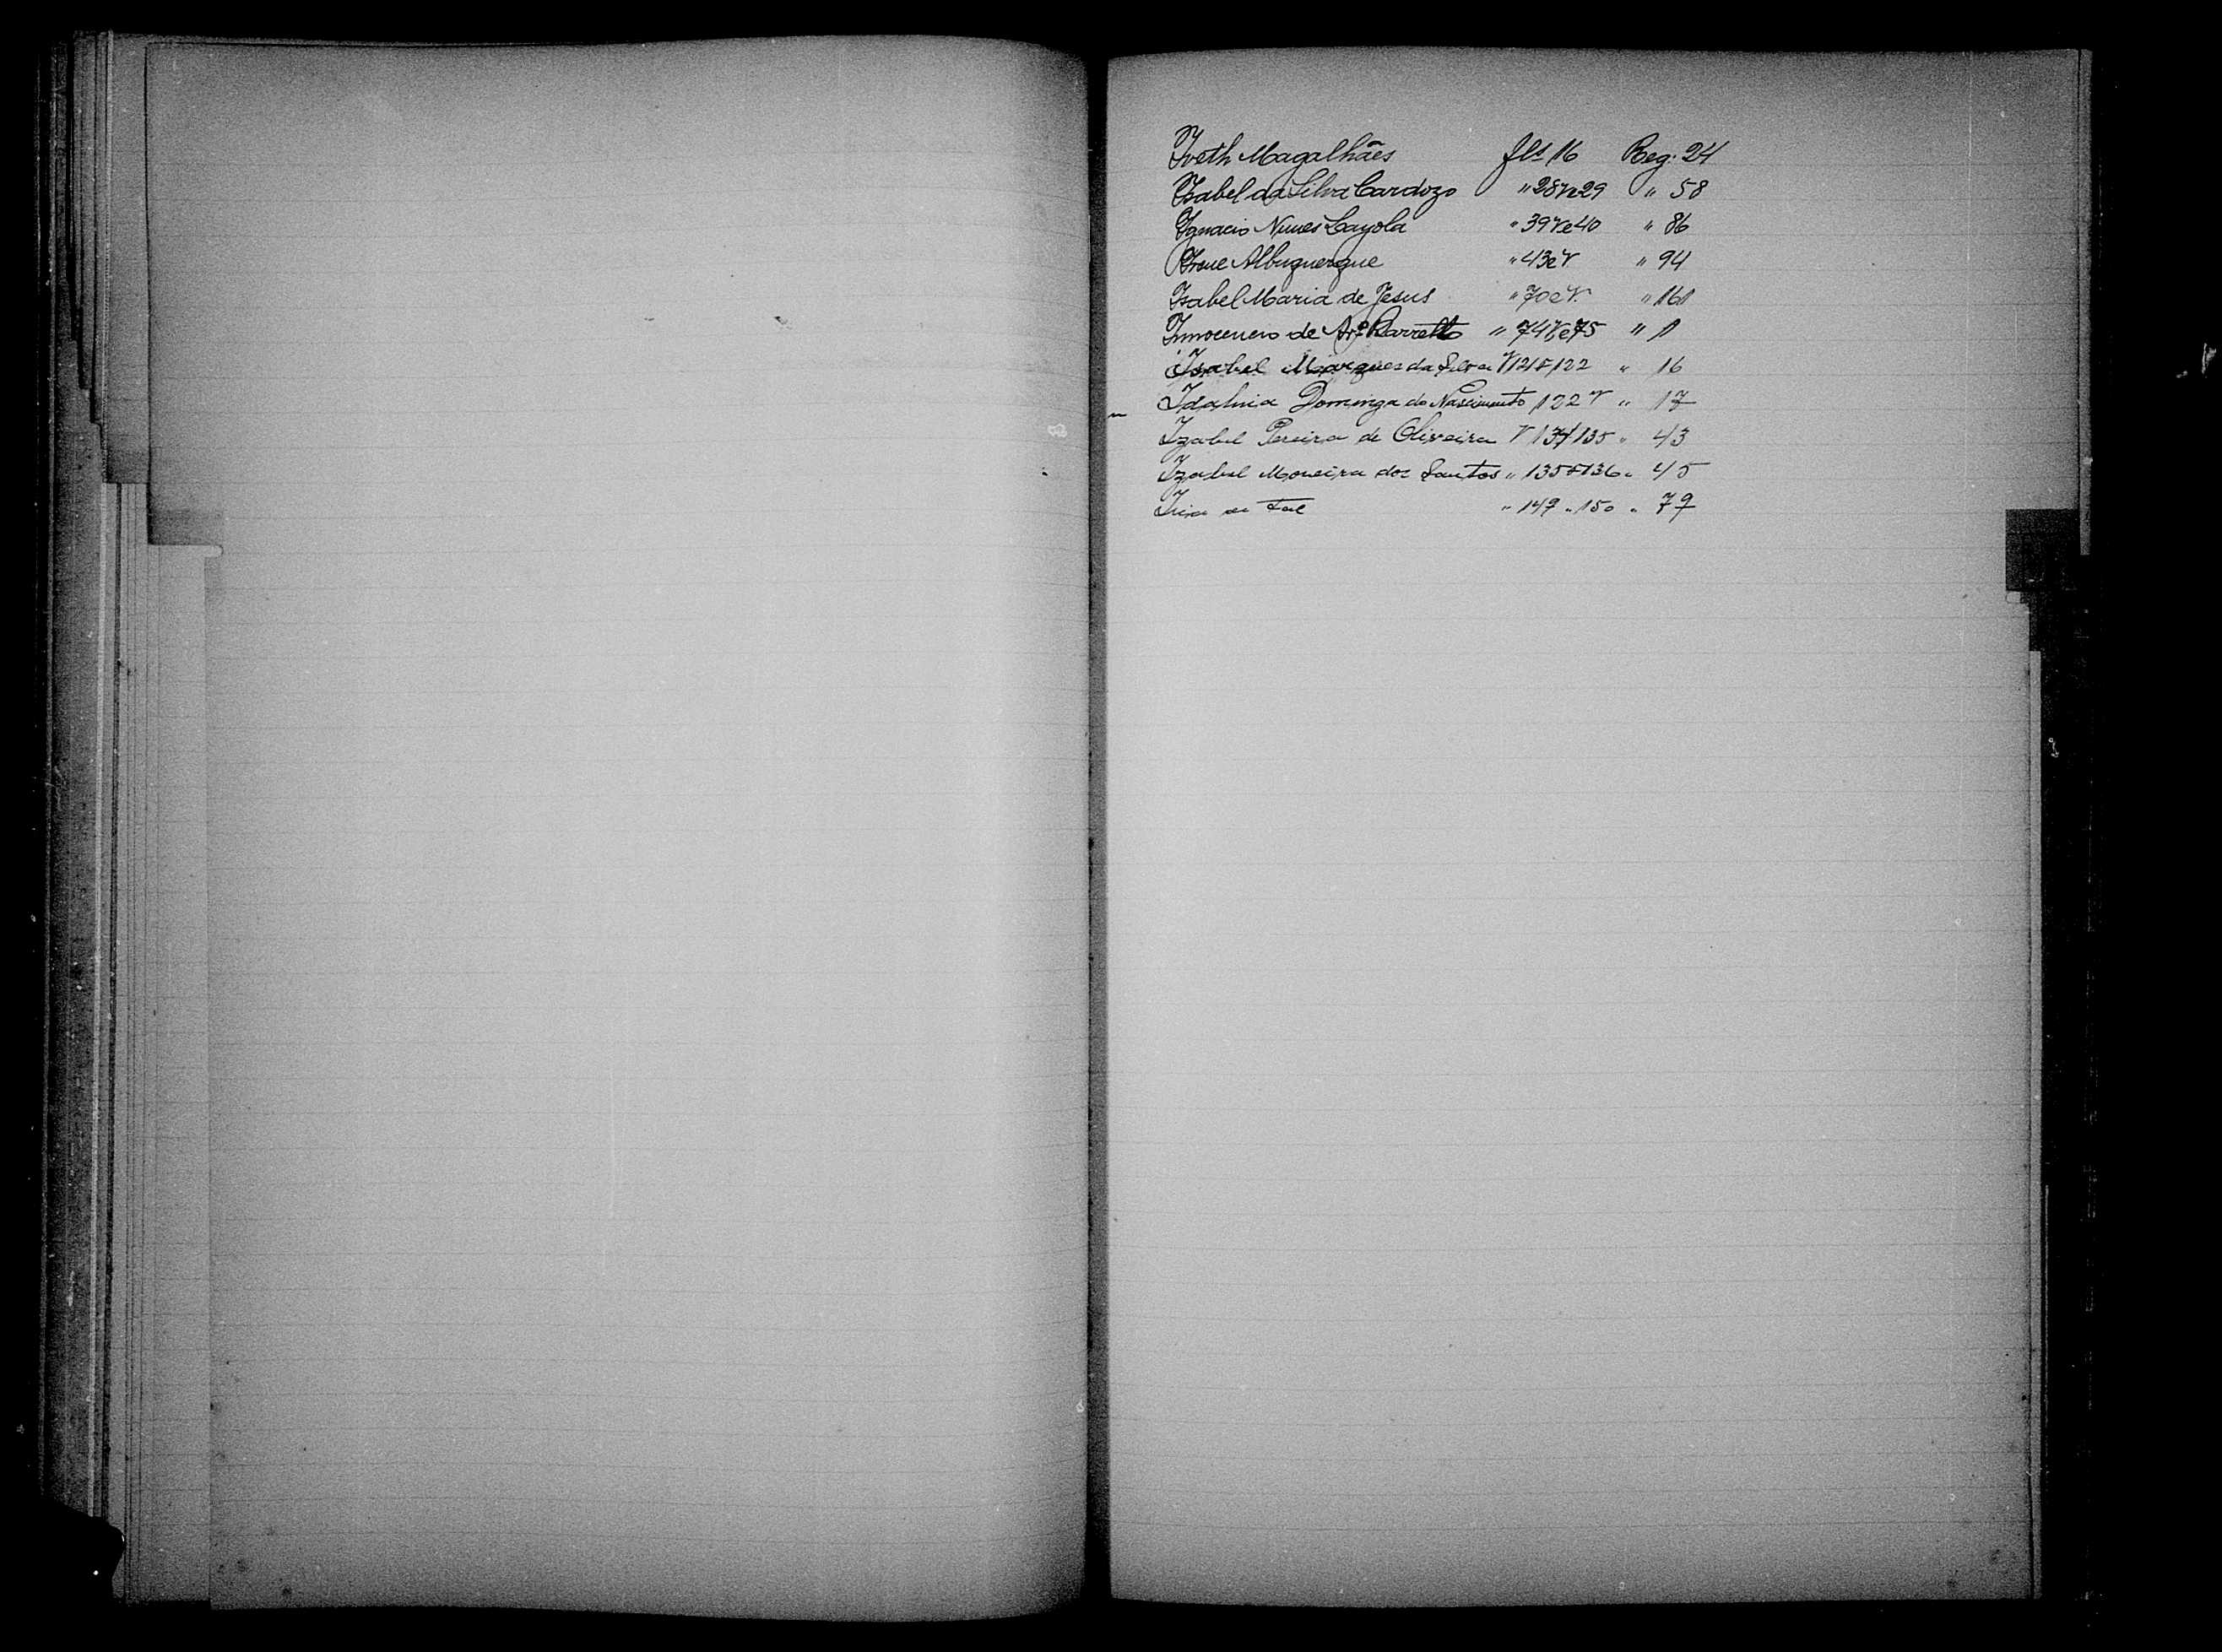 Iveth Magalhães fls 16 Reg. 24
Isabel da Silva Cardozo " 28ve29 " 58
Ignacio Nunes Layola " 39ve40 " 86
Irene Albuquerque " 43ev " 94
Isabel Maria de Jesus " 70ev. " 161
Innocencio de Barretto " 74Ve75 " 1
Isabel Marques da Silva V121 122 " 16
Dominga do Nascimento 122 v " 17
Izabel Pereira de Oliveira V 134 135 " 43
Izabel Moreira dos Santos " 135 136 " 45
" 149 " 150 " 79